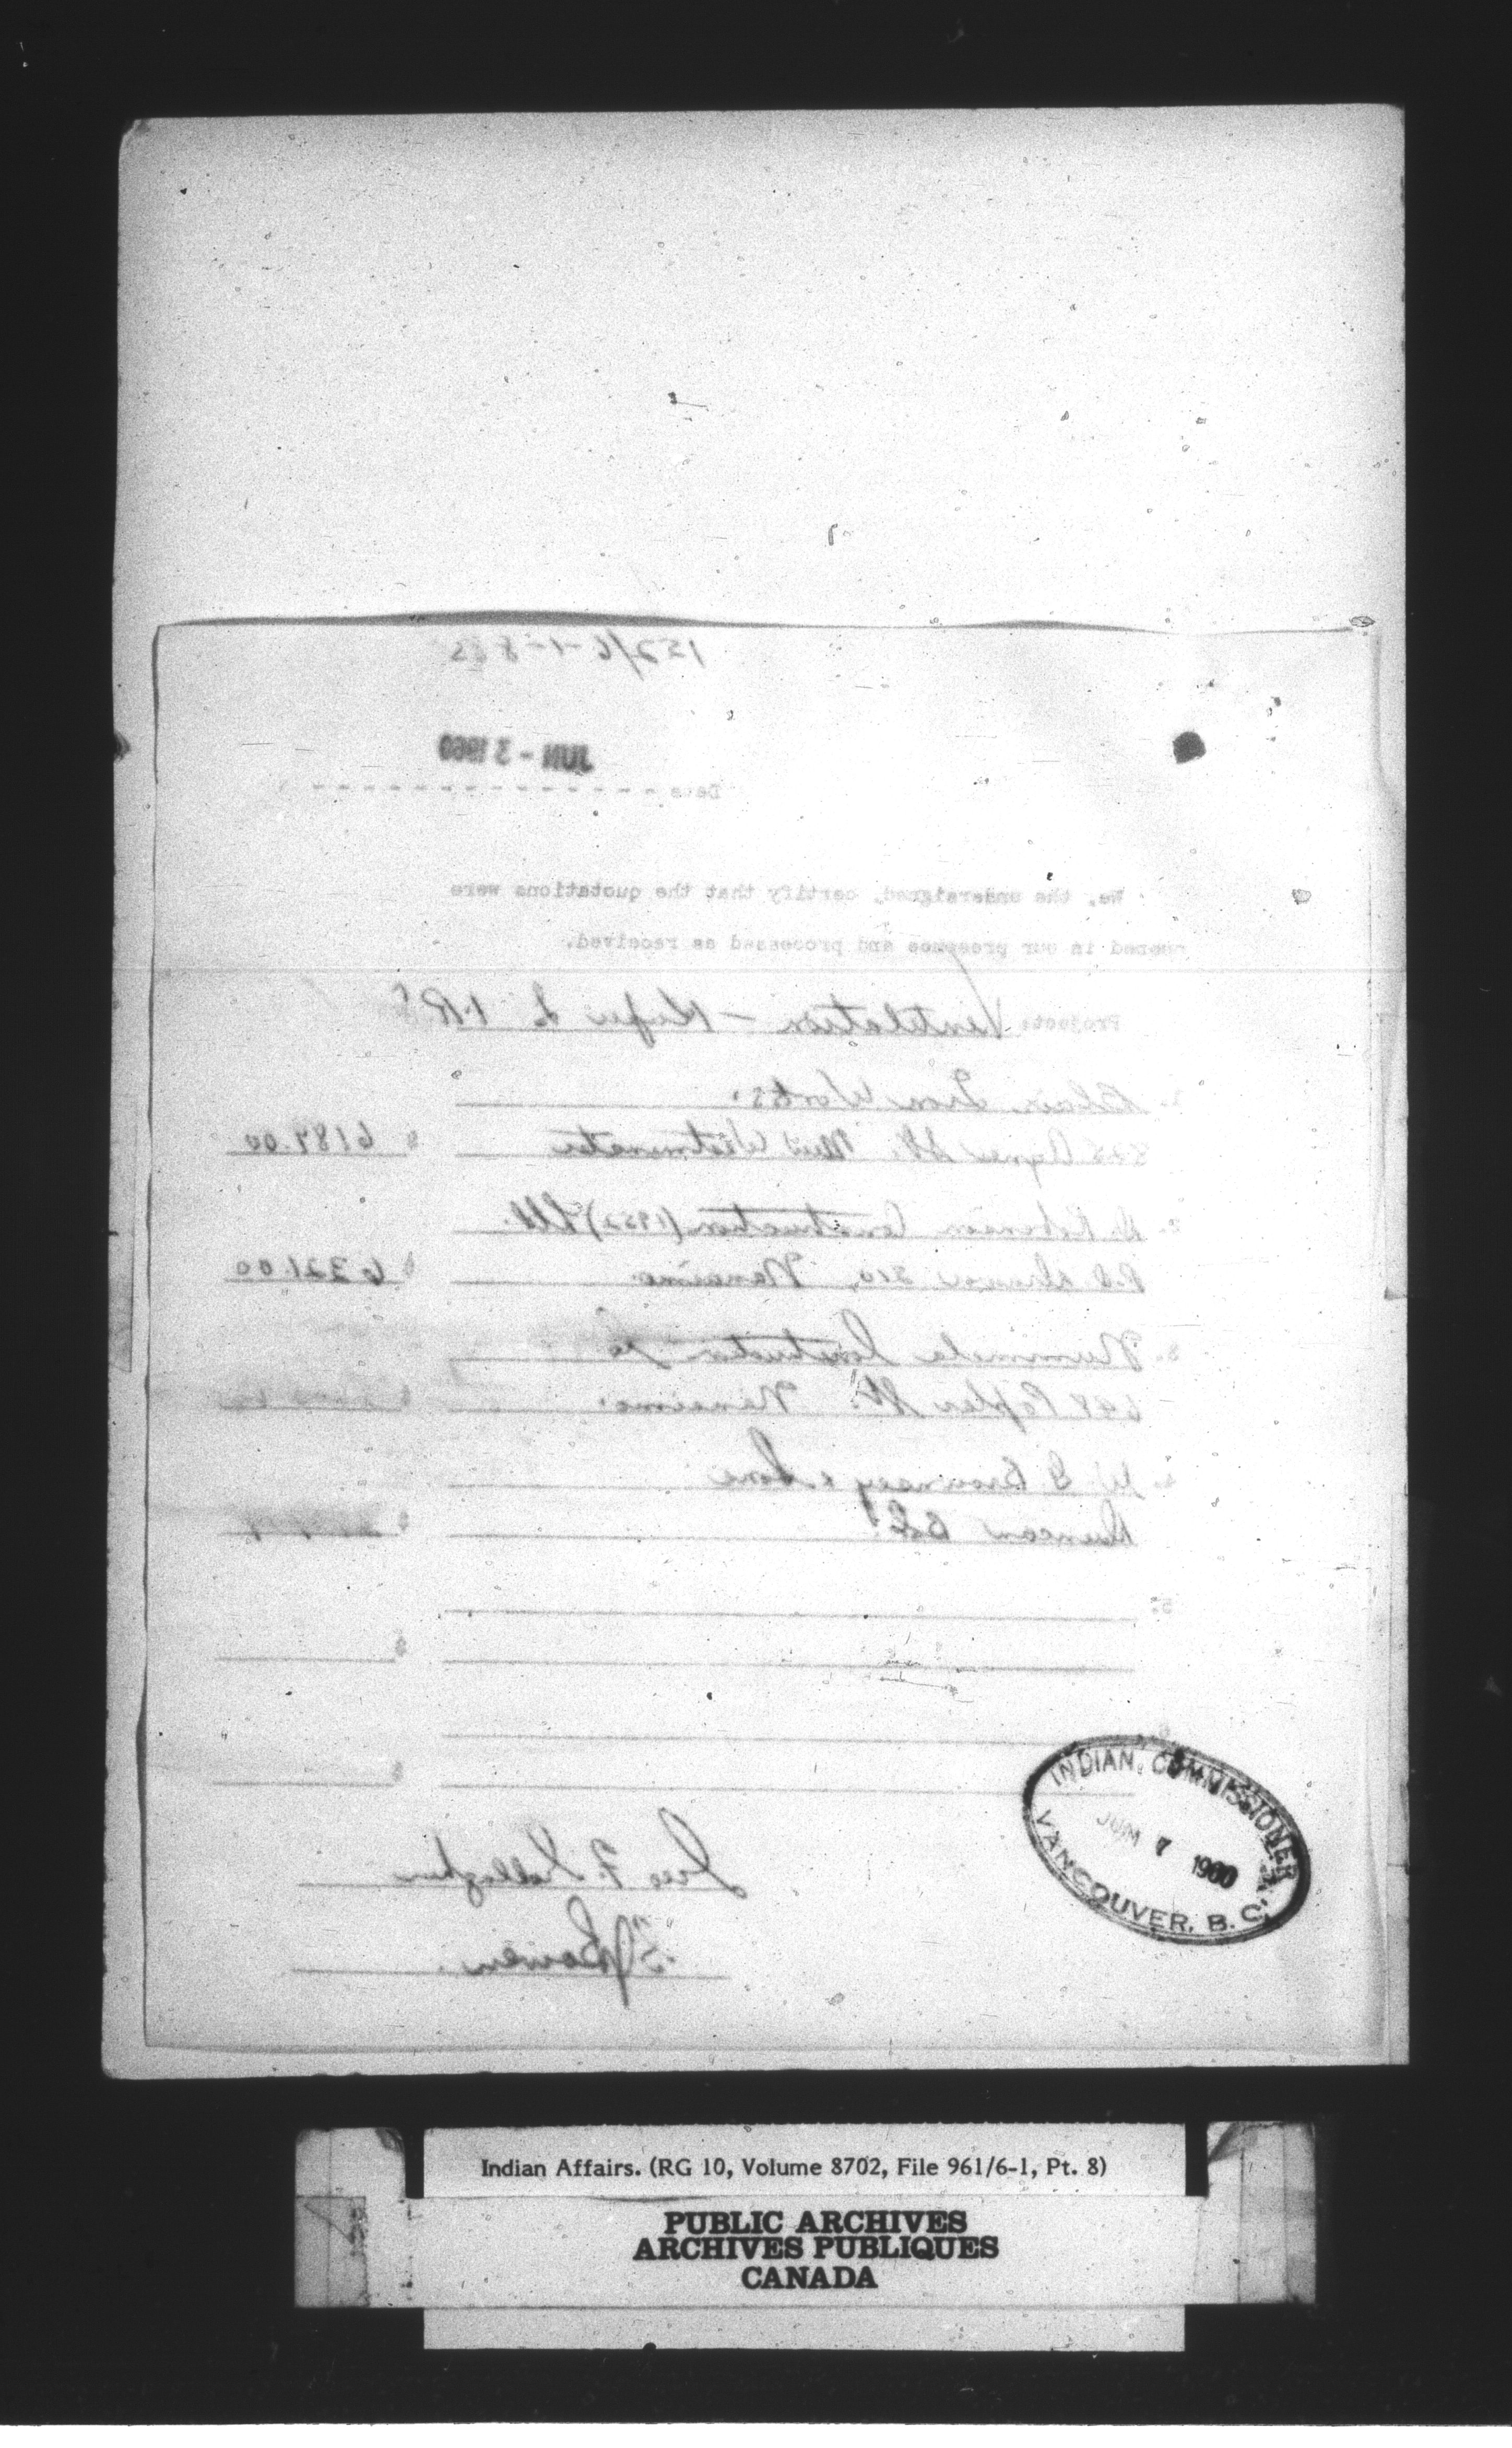 152/6-1-8
JUN - 3 1960
Date
We, the undersigned, certify that the quotations were
opened in our presence and processed as received.
Project: Ventilation - Kuper I. I.R.S
1. Blair Iron Works.
Agnes St. New Westminster $ 6187.00
2. Robinson Construction (1952) Ltd.
P.O. Drawer 310, Nanaimo $ 6321.00
3. Nummela Construction Co
698 Poplar St. Nanaimo. $
4. W G Brownsey & Sons
Duncan B.C. $
5.
$
6.
$
Geo. F.
Bowen
INDIAN COMMISSIONER
JUN 7 1960
VANCOUVER, B.C.
Indian Affairs. (RG 10, Volume 8702, File 961/6-1, Pt. 8)
PUBLIC ARCHIVES
ARCHIVES PUBLIQUES
CANADA